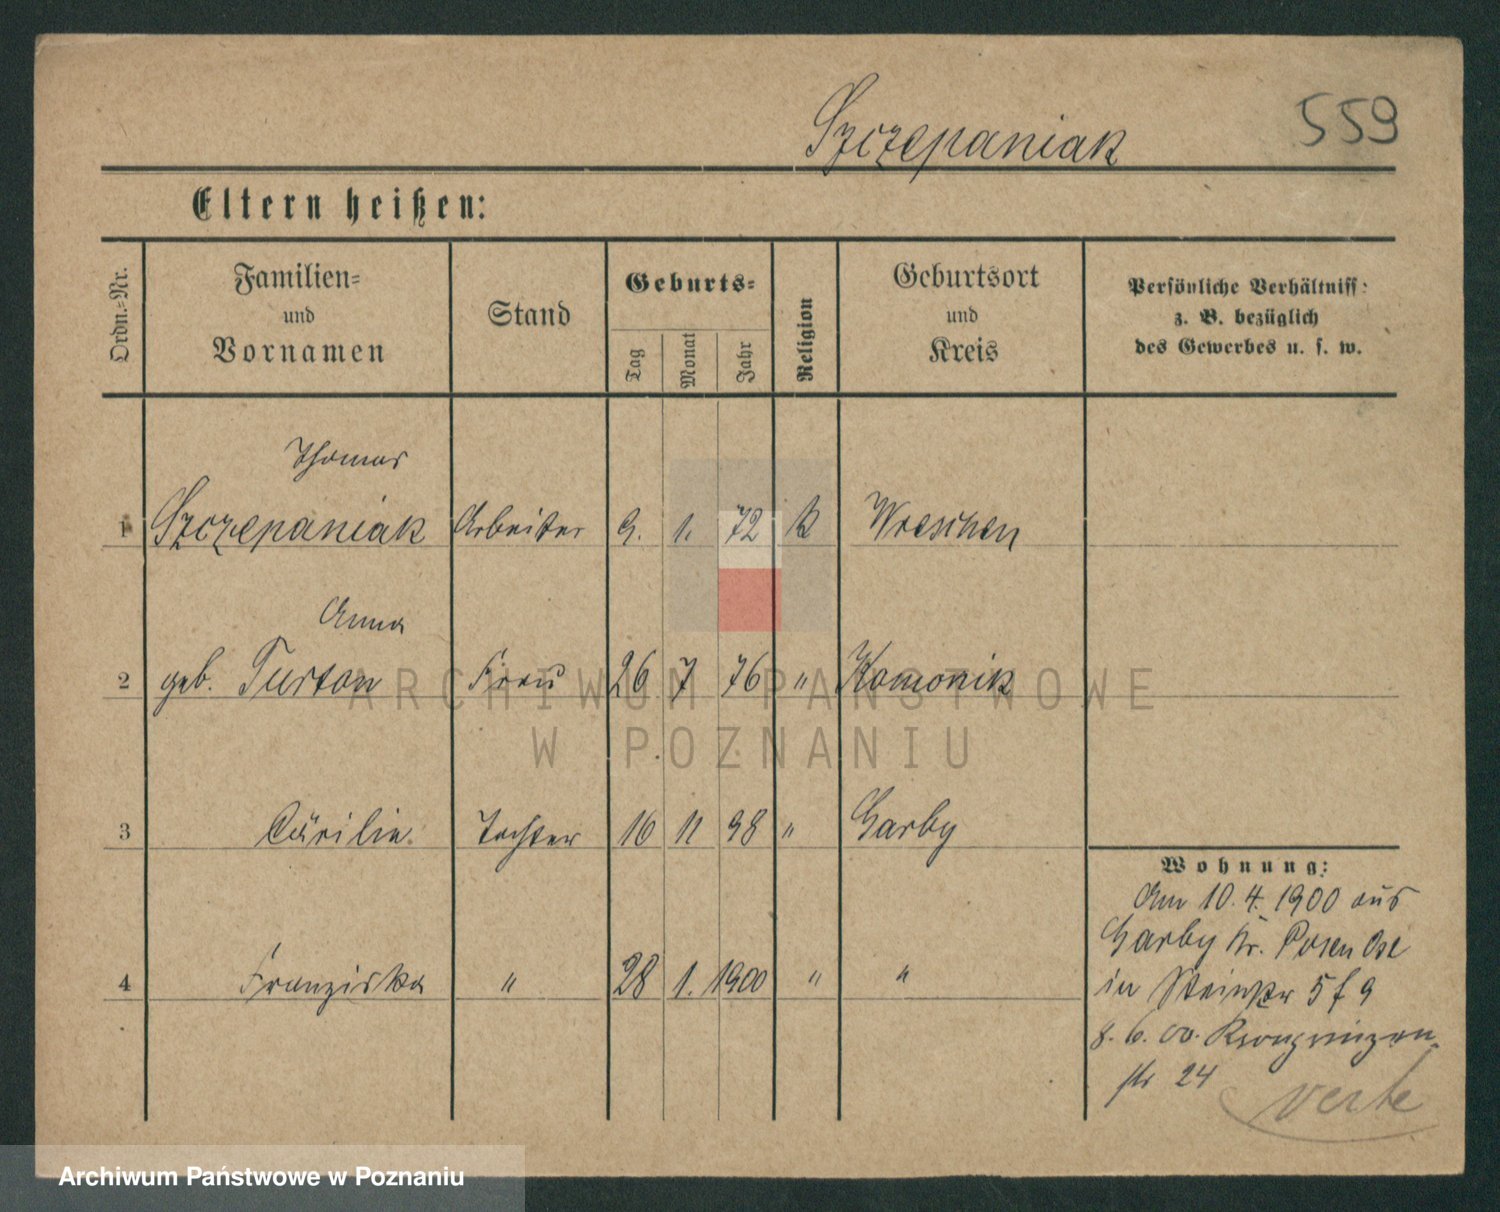 Szczepaniak
559
Eltern heißen:
Ordn.=Nr.
Familien=
und
Vornamen
Stand
Geburts=
Tag
Monat
Jahr
Religion
Geburtsort
und
Kreis
Persönliche Verhältniss:
z. B. bezüglich
des Gewerbes u. s. w.
Thomas
1 Szczepaniak Arbeiter 9. 1. 72 k Wreschen
Anna
2 geb. Turtan Frau 26 7 76 " Komornik
3 Cäcilie Tochter 16 11 98 " Garby
4 Franziska " 28 1. 1900 " "
Wohnung:
Am 10. 4. 1900 aus
Garby Kr. Posen Ost
in Steinstr 5 f 9
8. 6. 00. Kronprinzen-
str 24
verte
ARCHIWUM PAŃSTWOWE
W POZNANIU
Archiwum Państwowe w Poznaniu